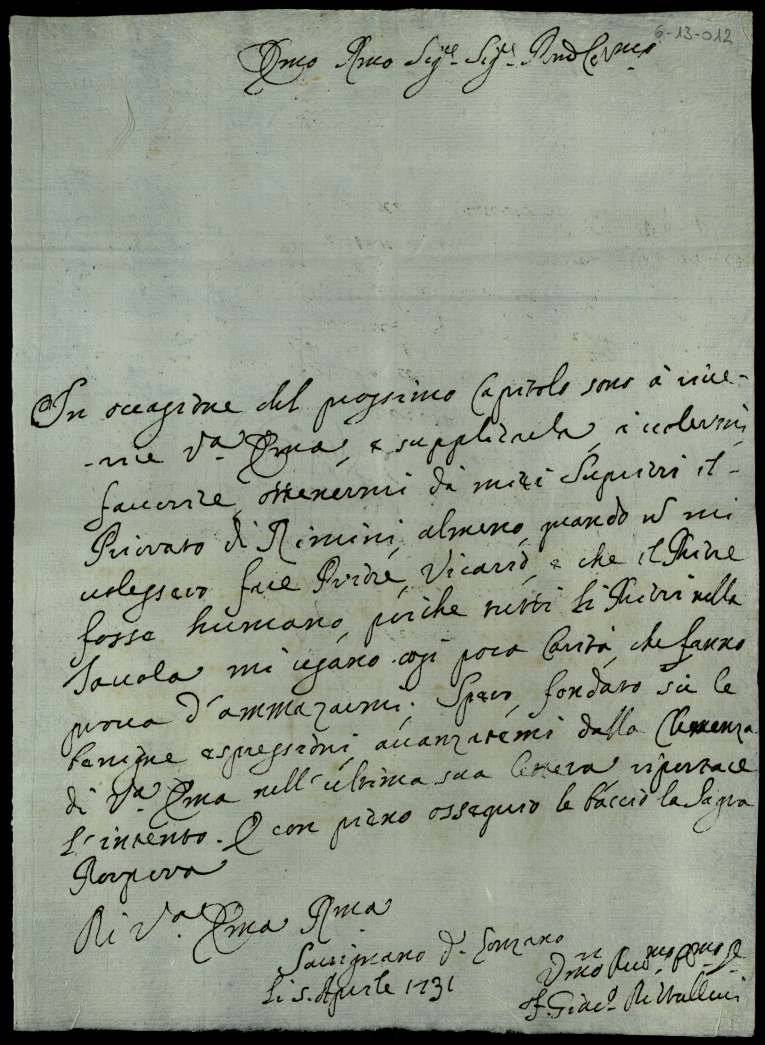 6-13-012
Emo Rmo Sig.re Sig.re
In occasione del prossimo Capitolo sono à rive-
-rire V.a Ema, e supplicarla, à volermi
favorire, ottenermi da miei Superiori il
Priorato di Rimini, almeno, quando nō mi
volessero fare Priore, Vicario, e che il Priore
fosse humano, perche tutti li Priori nella
Tavola mi usano così poca Carità, che fanno
prova d'ammazarmi. Spero, fondato sù le
benigne espressioni avanzatemi dalla Clemenza
di V.a Ema nell'ultima sua lettera, riportare
l'intento. E con pieno ossequio le baccio la Sagra
Porpora
Di V.a Ema Rma
Savignano di
Li 5. Aprile 1731
F. Giac.o